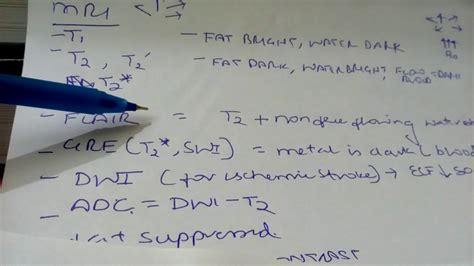 MRI
- T1 - FAT BRIGHT, WATER DARK
- T2, T2' - FAT DARK, WATER BRIGHT,
T2*
- FLAIR = T2 + non flowing
- GRE (T2*, SWI) = metal is dark (blood
- DWI (for ischemic stroke) →
- ADC = DWI - T2
- Fat suppressed